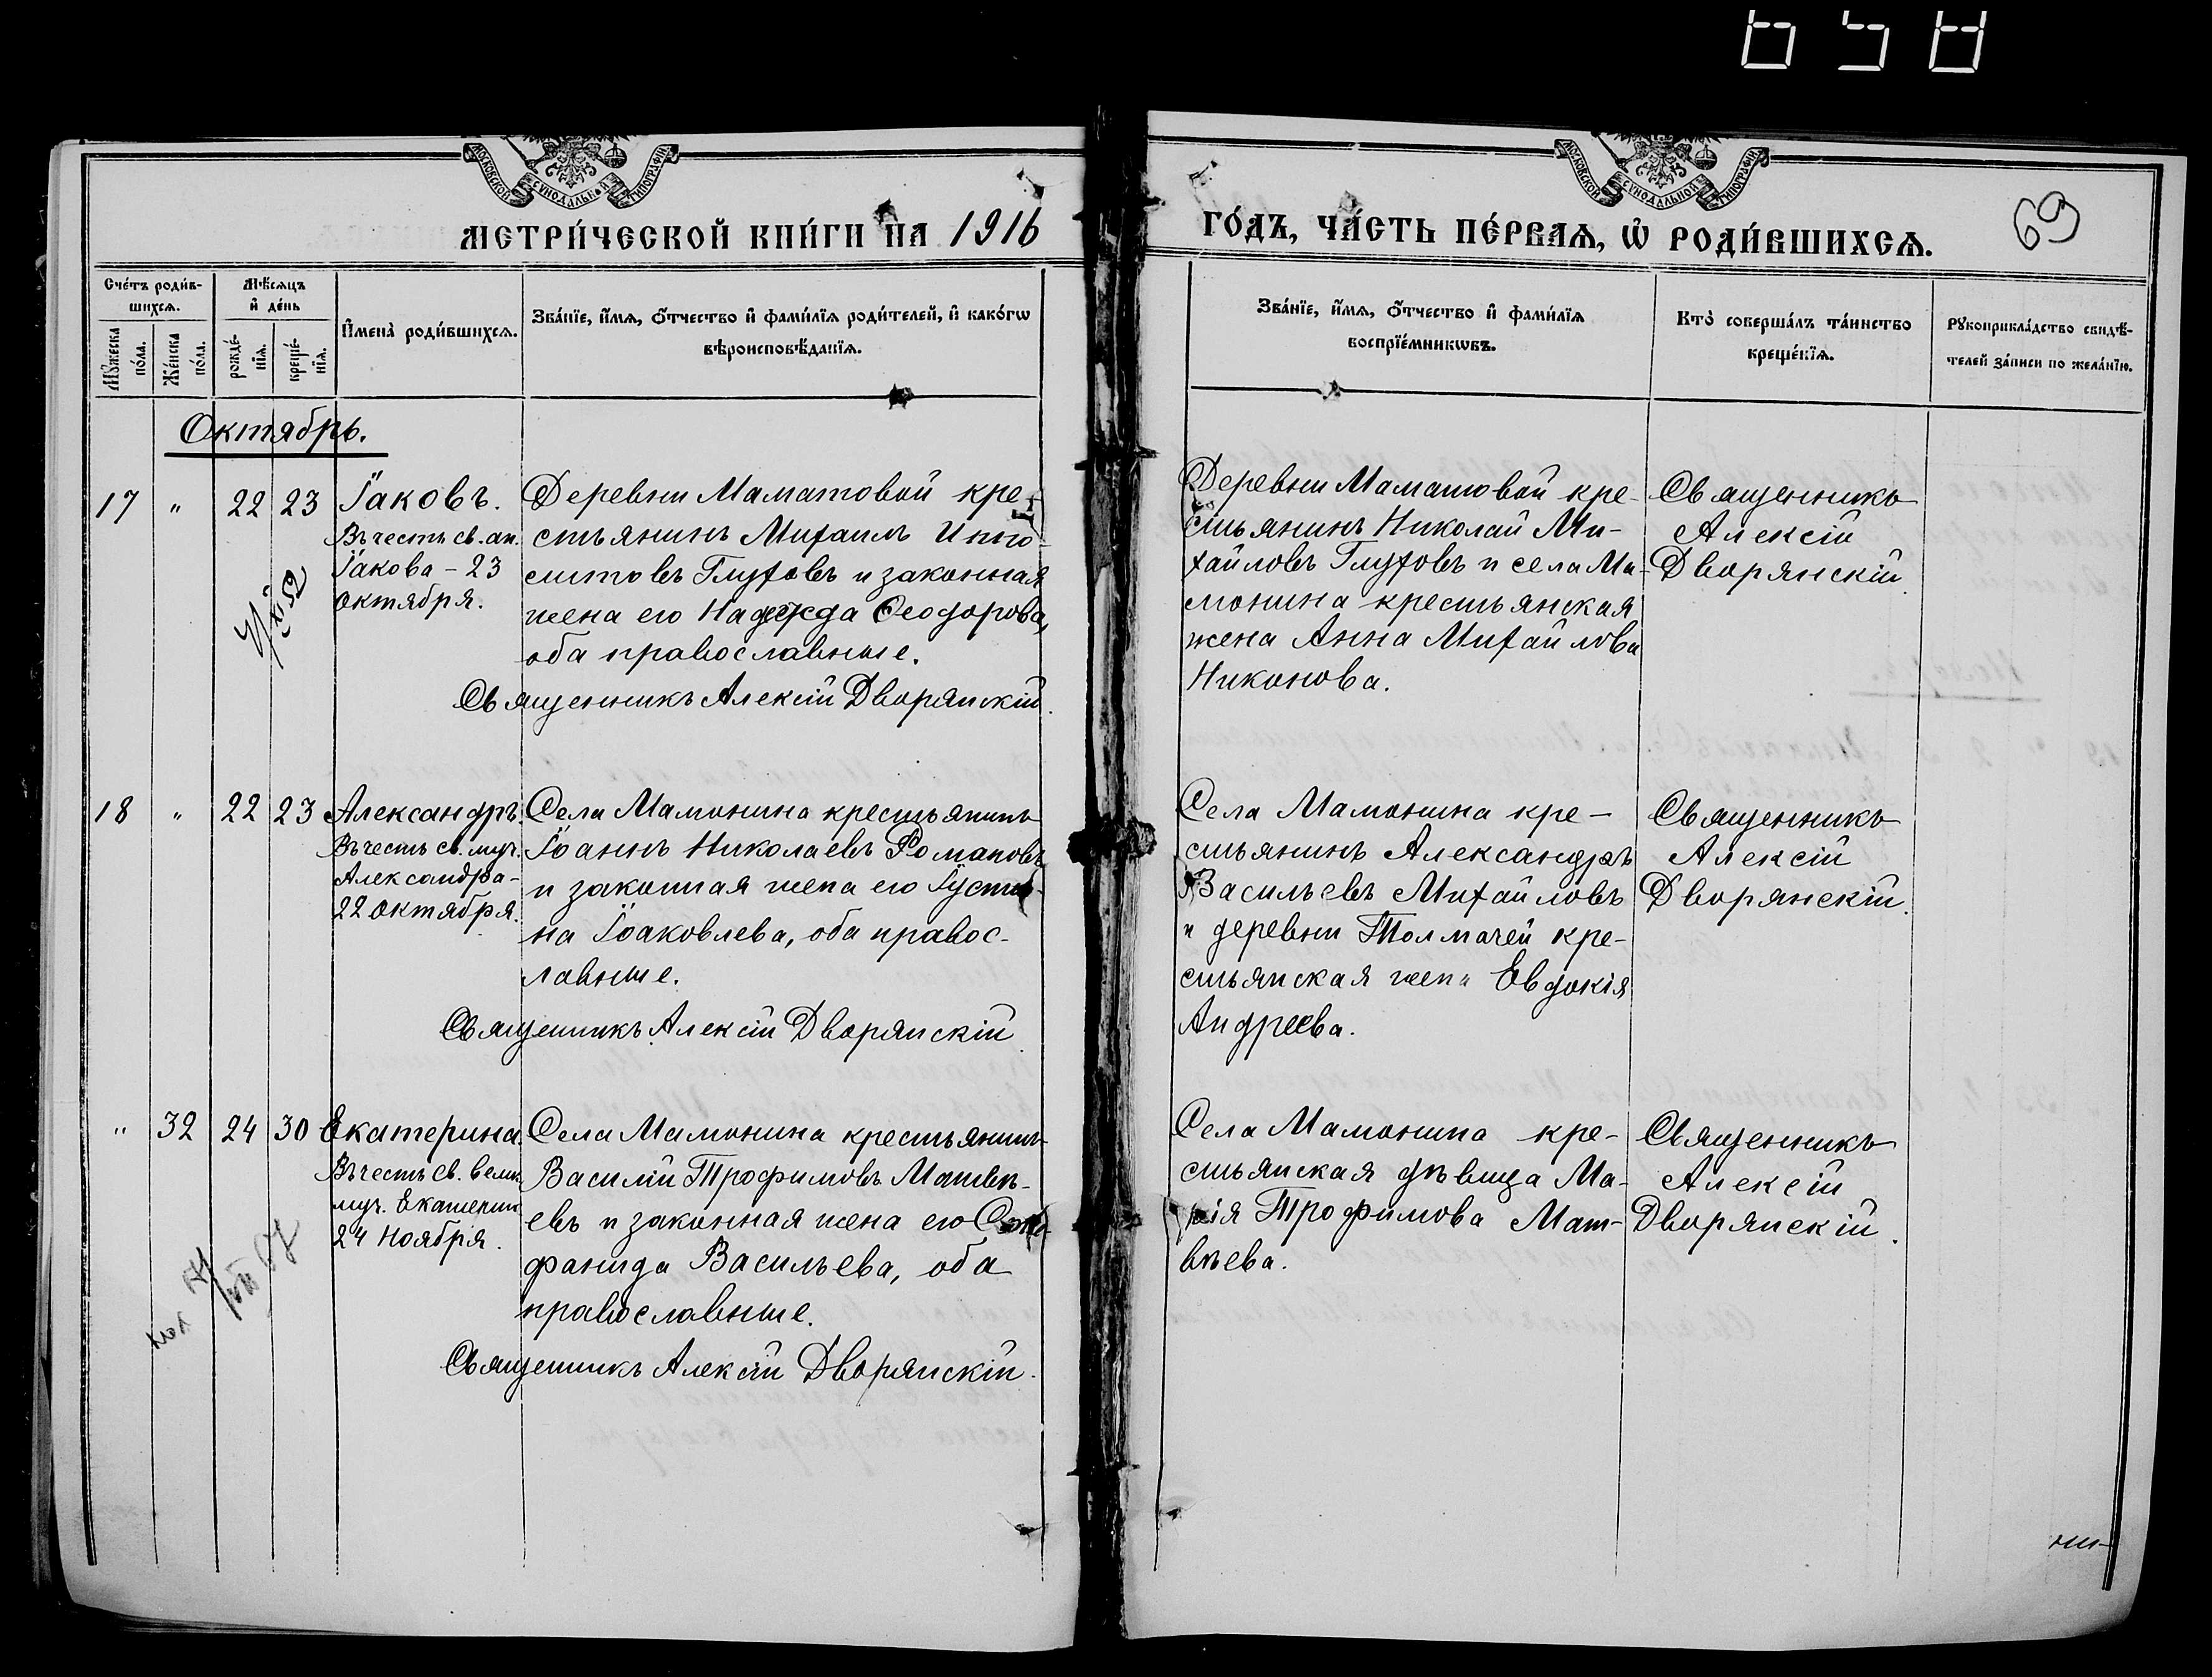 658
МОСКОВСКОЙ СѴНОДАЛЬНОЙ ТИПОГРАФІИ
МОСКОВСКОЙ СѴНОДАЛЬНОЙ ТИПОГРАФІИ
МЕТРИ́ЧЕСКОЙ КНИ́ГИ НА 1916
ГО́ДЪ, ЧА́СТЬ ПЕ́РВАѦ, Ѡ҆ РОДИ́ВШИХСѦ.
69
Сче́тъ роди́в-
шихсѧ.
Мѣ́сѧцъ
и҆ де́нь
Мꙋ́жеска
по́ла.
Же́нска
по́ла.
рожде́-
нїѧ.
креще́-
нїѧ.
И҆мена̀ роди́вшихсѧ.
Зва́нїе, и҆́мѧ, ѻ҆́тчество и҆ фами́лїѧ роди́телей, и҆ како́гѡ
вѣроисповѣ́данїѧ.
Зва́нїе, и҆́мѧ, ѻ҆́тчество и҆ фами́лїѧ
воспрїе́мникѡвъ.
Кто̀ соверша́лъ та́инство
креще́нїѧ.
Рꙋкоприкла́дство свидѣ́-
телей за́писи по жела́нїю.
Октябрь.
17 " 22 23 Іаковъ.
Въ честь св. ап.
Іакова - 23
октября.
Деревни Маматовой кре-
стьянинъ Михаилъ Иппо-
литовъ Глуховъ и законная
жена его Надежда Ѳеодорова,
оба православные.
Священникъ Алексій Дворянскій.
Деревни Маматовой кре-
стьянинъ Николай Ми-
хайловъ Глуховъ и села Ма-
монина крестьянская
жена Анна Михайлова
Никонова.
Священникъ
Алексій
Дворянскій.
18 " 22 23 Александръ.
Въ честь св. муч.
Александра -
22 октября.
Села Мамонина крестьянинъ
Іоаннъ Николаевъ Романовъ
и законная жена его Іусти-
на Іоаковлева, оба правос-
лавные.
Священникъ Алексій Дворянскій.
Села Мамонина кре-
стьянинъ Александръ
Васильевъ Михайловъ
и деревни Толмачей кре-
стьянская жена Евдокія
Андреева.
Священникъ
Алексій
Дворянскій.
" 32 24 30 Екатерина.
Въ честь св. велик.
муч. Екатерин.
24 ноября.
Села Мамонина крестьянинъ
Василій Трофимовъ Матвѣ-
евъ и законная жена его
фанида Васильева, оба
православные.
Священникъ Алексій Дворянскій.
Села Мамонина кре-
стьянская дѣвица Ма-
рія Трофимова Мат-
вѣева.
Священникъ
Алексій
Дворянскій.